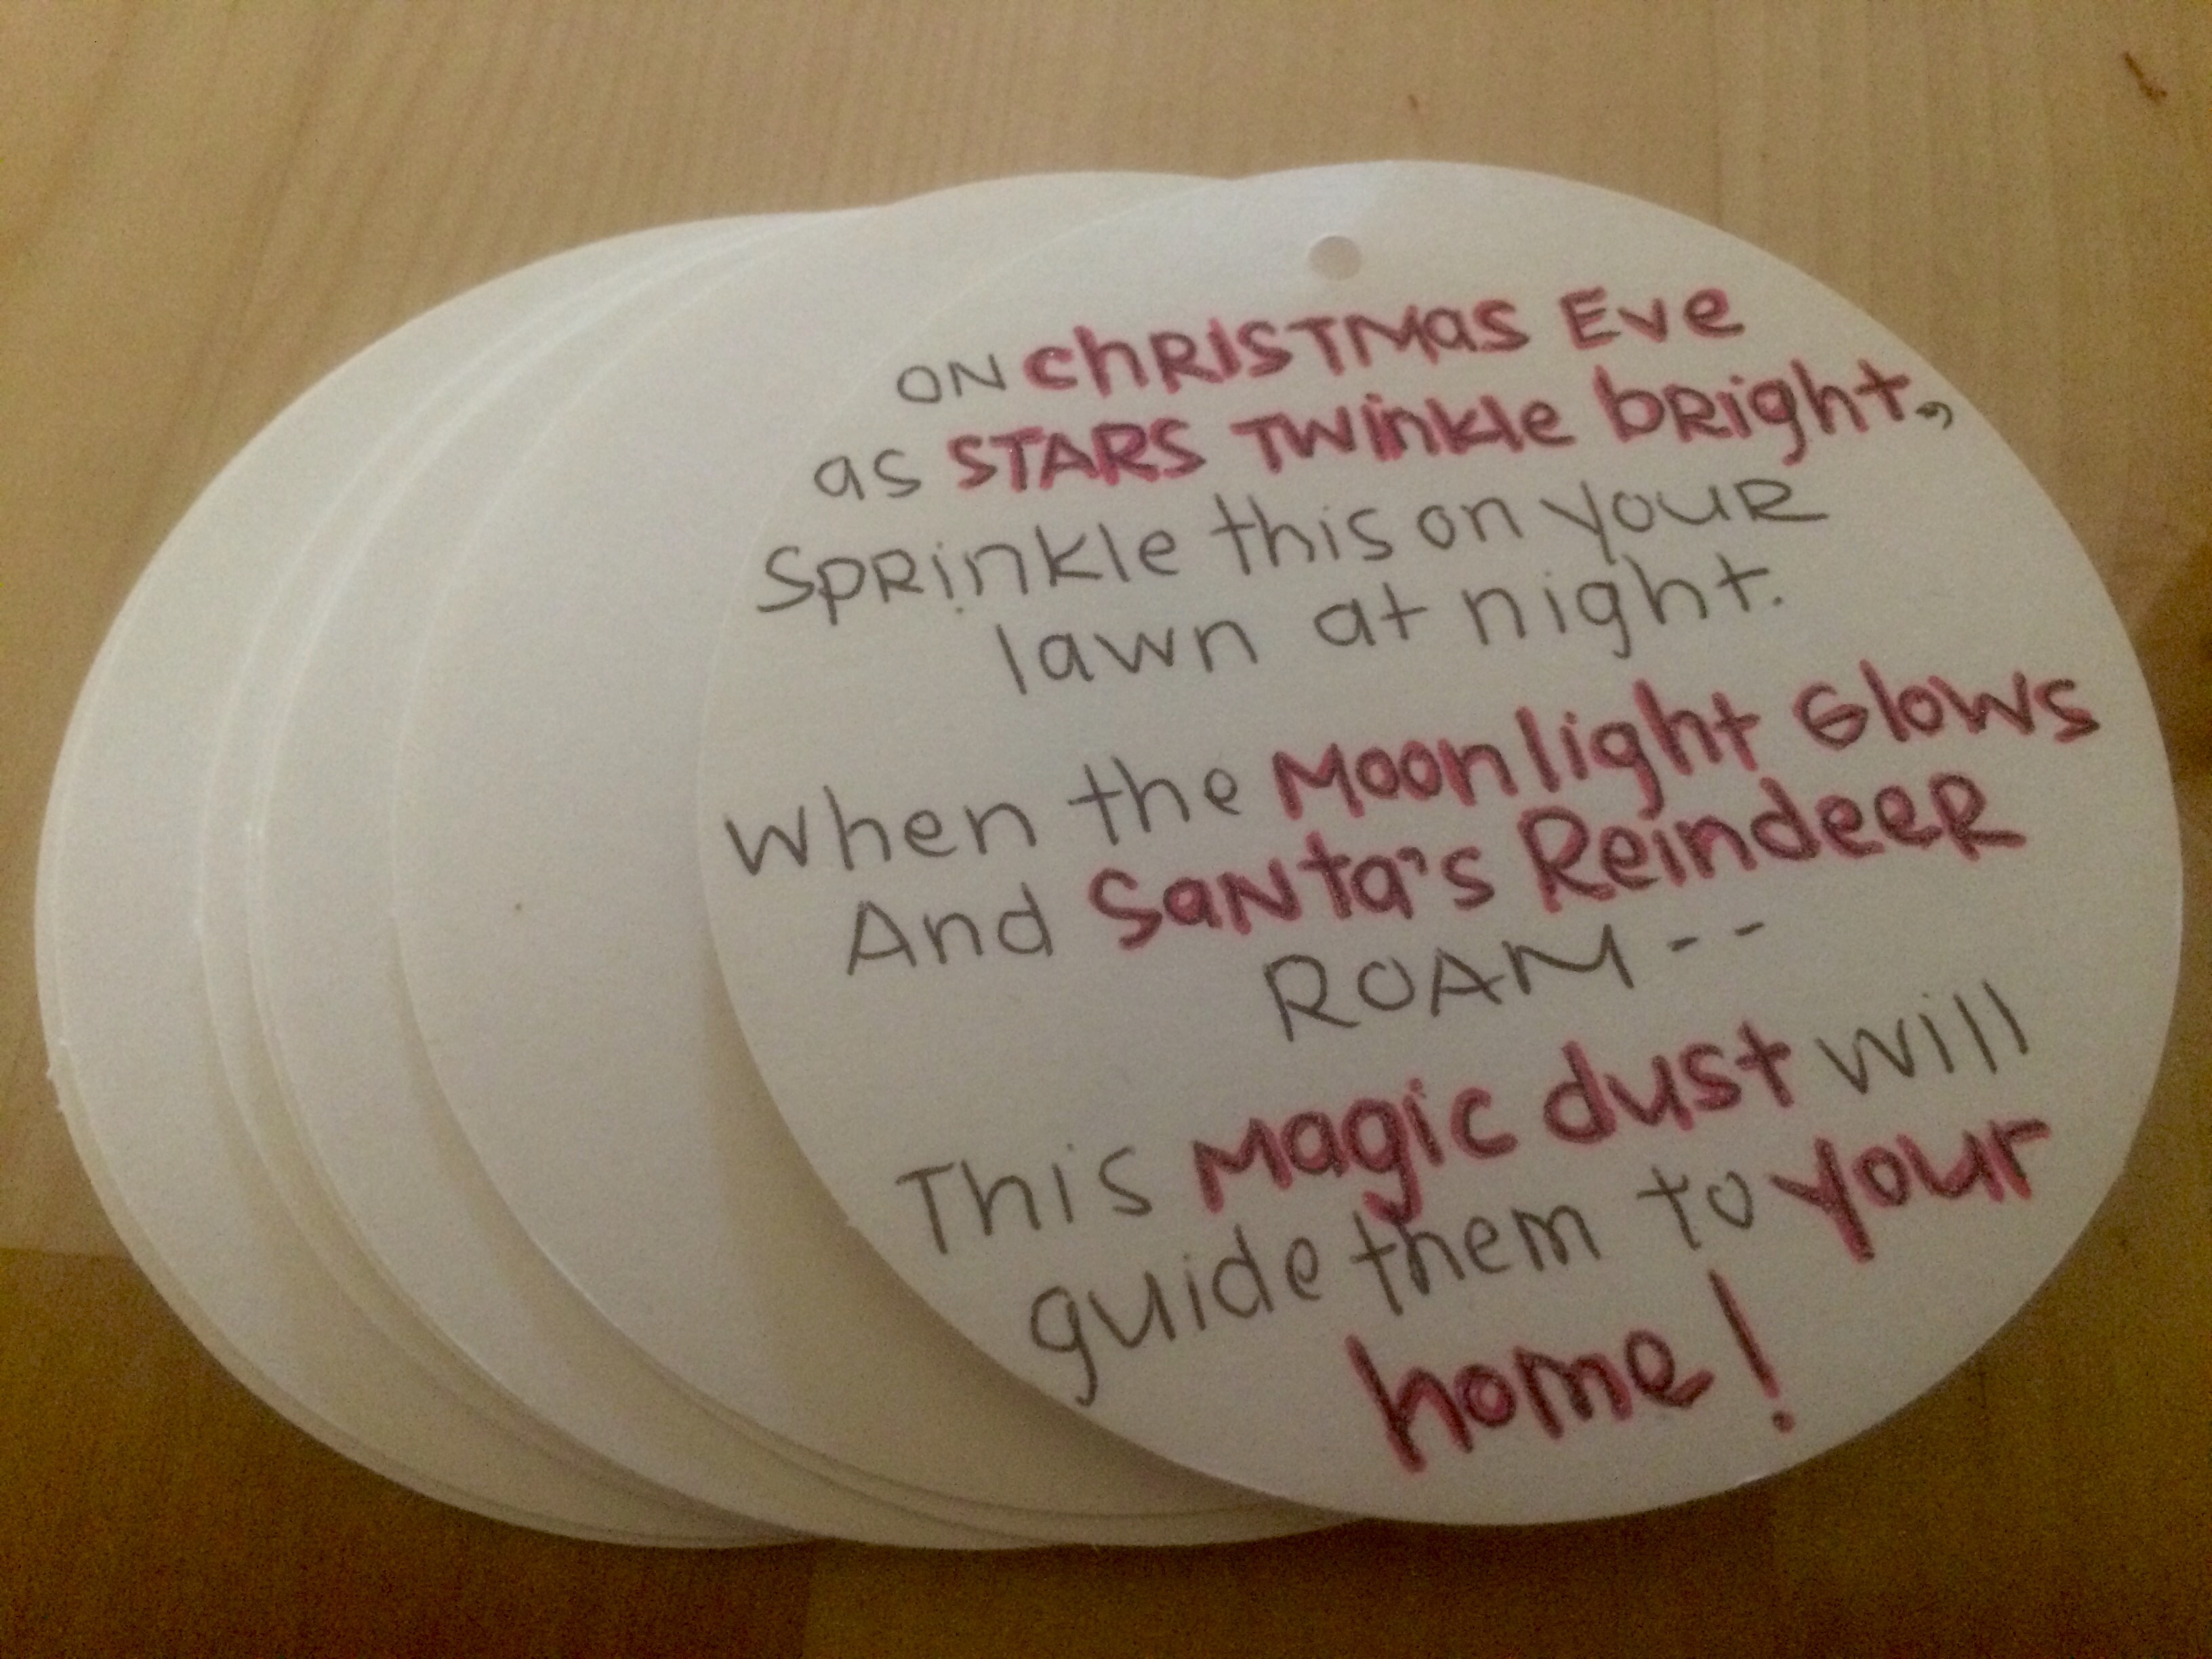 ON ChRISTMas Eve
as STARS TWinkle bRight,
SpRinkle this on youR
lawn at night.
When the Moonlight Glows
And SaNta's ReindeeR
ROAM--
This Magic dust will
guide them to your
home!